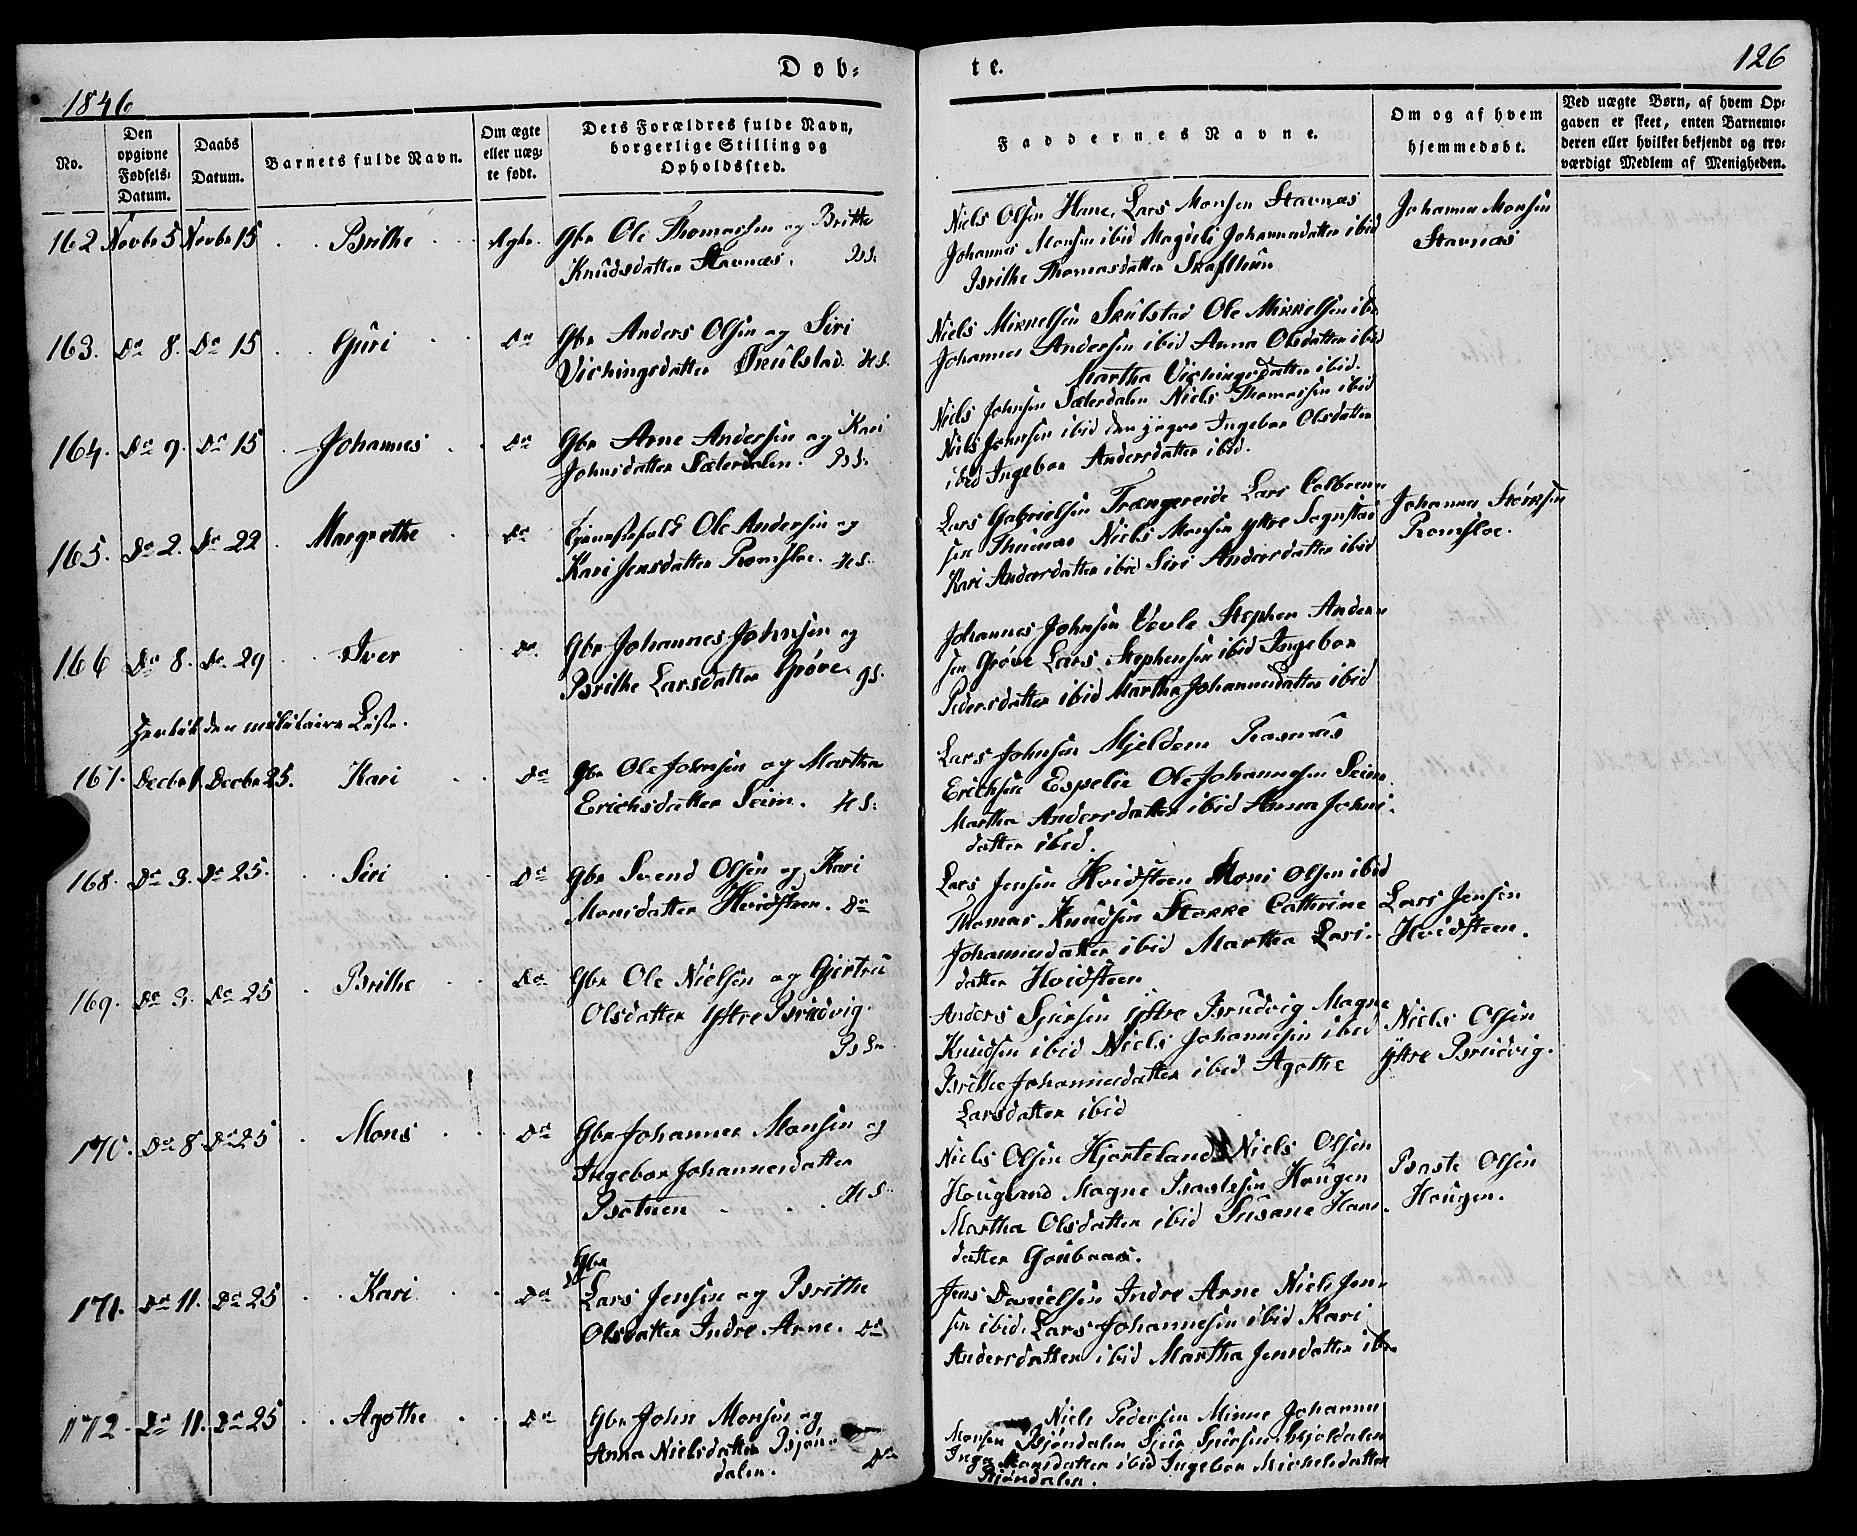 Döb=
te.
126
1846
No.
Den opgivne Fødsels-Datum.
Daabs Datum.
Barnets fulde Navn.
Om ægte eller uæg-te født.
Dets Forældres fulde Navn, borgerlige Stilling og Opholdssted.
Faddernes Navne.
Om og af hvem hjemmedøbt.
Ved uægte Børn, af hvem Op-gaven er skeet, enten Barnemo-deren eller hvilket bekjendt og tro-værdigt Medlem af Menigheden.
162 Novbr 5 Novbr 15 Brithe Ægte. Gbr Ole Thomassen og Britte
Knudsdatter Stavnæs. BS.
Niels Olsen Hane, Lars Monsen Stavnæs
Johannes Monsen ibid Magdeli Johannesdatter ibid
Brithe Thomasdatter Skafthun
Johannes Monsen
Stavnæs
163. Do 8. Do 15 Guri Do Gbr Anders Olsen og Siri
Vichingsdatter Skulstad. HS.
Niels Mikkelsen Skulstad Ole Mikkelsen ibd
Johannes Andersen ibid Anna Olsdatter ibid
Martha Vichingsdatter ibid.
164. Do 9. Do 15 Johannes Do Gbr Arne Andersen og Kari
Johnsdatter Sæterdalen. BS.
Niels Johnsen Sæterdalen Niels Thomassen ibid
Niels Johnsen ibid den yngre Ingebor Olsdatter
ibid Ingebor Andersdatter ibid.
165. Do 2. Do 22 Margrethe Do Tjenestefolk Ole Andersen og
Kari Jensdatter Romsloe. HS.
Lars Gabrielsen Trængereide Lars Colbeen-
sen Thunæs Niels Monsen ystre Sognstad
Kari Andersdatter ibid Siri Andersdatter ibid
Johannes Størksen
Romsloe.
166 Do 8. Do 29 Iver Do. Gbr Johannes Johnsen og
Brithe Larsdatter Grøve. GS.
Johannes Johnsen Vevle Stephen Ander-
sen Grøve Lars Stephensen ibid Ingebor
Pedersdatter ibid Martha Johannesdatter ibid
den militaire Liste.
167. Decbr 1. Decbr 25. Kari Do Gbr Ole Johnsen og Martha
Erichsdatter Seim. HS.
Lars Johnsen Mjeldem Rasmus
Erichsen Espelie Ole Johannesen Seim
Martha Andersdatter ibid Anna Johns-
datter ibid.
168. Do 3. Do 25. Siri Do Gbr Svend Olsen og Kari
Monsdatter Hvidsteen. Do
Lars Jensen Hvidsteen Mons Olsen ibid
Thomas Knudsen Stokke Cathrine
Johannesdatter ibid Martha Lars-
datter Hvidsteen
Lars Jensen
Hvidsteen.
169. Do 3. Do 25 Brithe Do Gbr Ole Nielsen og Gjertru
Olsdatter Ystre Brudvig.
BS.
Anders Sjursen ystre Brudvig Magne
Knudsen ibid Niels Johannesen ibid
Brithe Johannesdatter ibid Agothe
Larsdatter ibid
Niels Olsen
ystre Brudvig.
170. Do 8. Do 25 Mons Do Gbr Johannes Monsen og
Ingebor Johannesdatter
Botnen HS.
Niels Olsen Hjorteland Niels Olsen
Hougland Magne Baardsen Hougen
Martha Olsdatter ibid Susane Hans-
datter Goubnæs.
Baste Olsen
Hougen.
171. Do 11. Do 25 Kari Do Gbr
Lars Jensen og Brithe
Olsdatter Indre Arne. Do
Jens Danielsen Indre Arne Niels Jen-
sen ibid. Lars Johannesen ibid Kari
Andersdatter ibid Martha Jensdatter ibid
172. Do 11. Do 25 Agothe Do Gbr John Monsen og
Anna Nielsdatter Bjørn-
dalen. Do
Niels Pedersen Minne Johannes
Monsen Bjørndalen Sjur Sjursen Mjeldalen
Inga Monsdatter ibid Ingebor Michelsdatter
Bjørndalen.